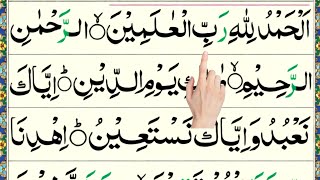 اَلْحَمْدُ لِلّٰهِ رَبِّ الْعٰلَمِیْنَ ۙ الرَّحْمٰنِ
الرَّحِیْمِ ۙ مٰلِكِ یَوْمِ الدِّیْنِ ؕ اِیَّاكَ
نَعْبُدُ وَ اِیَّاكَ نَسْتَعِیْنُ ؕ اِهْدِنَا